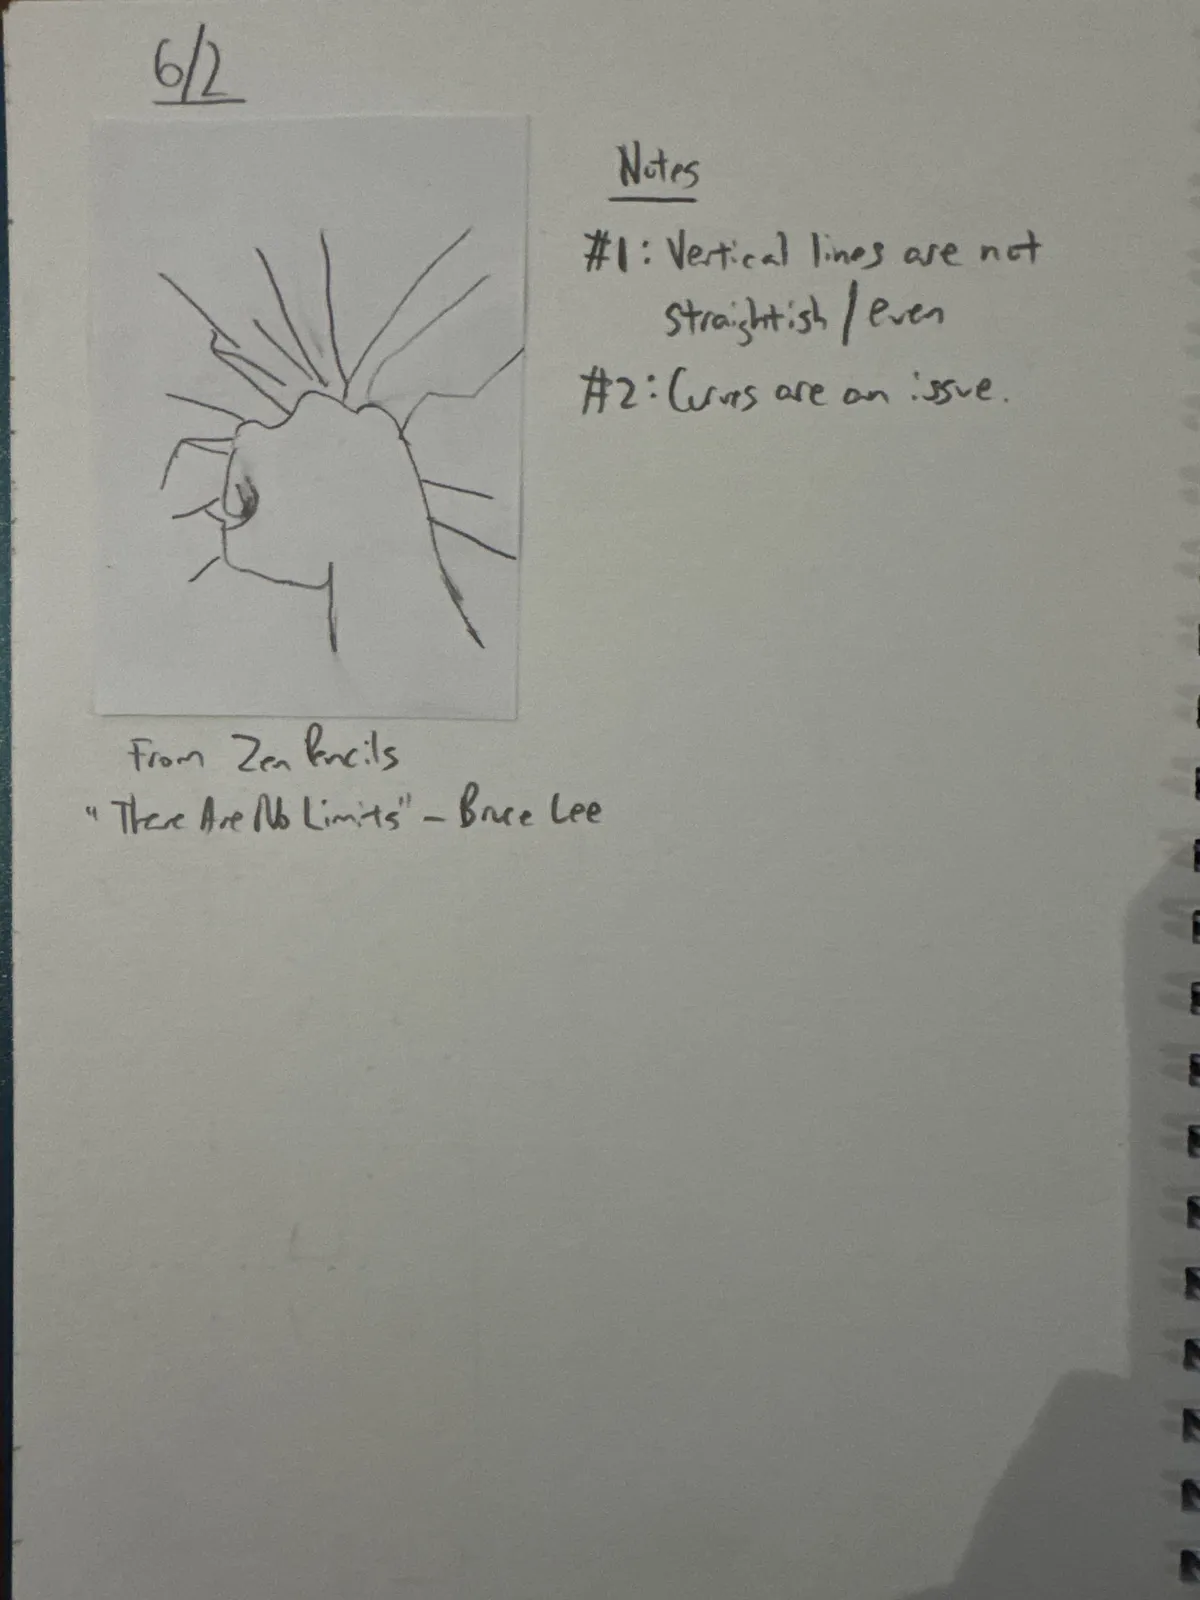 6/2
Notes
#1: Vertical lines are not
straightish / even
#2: Curves are an issue.
From Zen Pencils
"There Are No Limits" - Bruce Lee